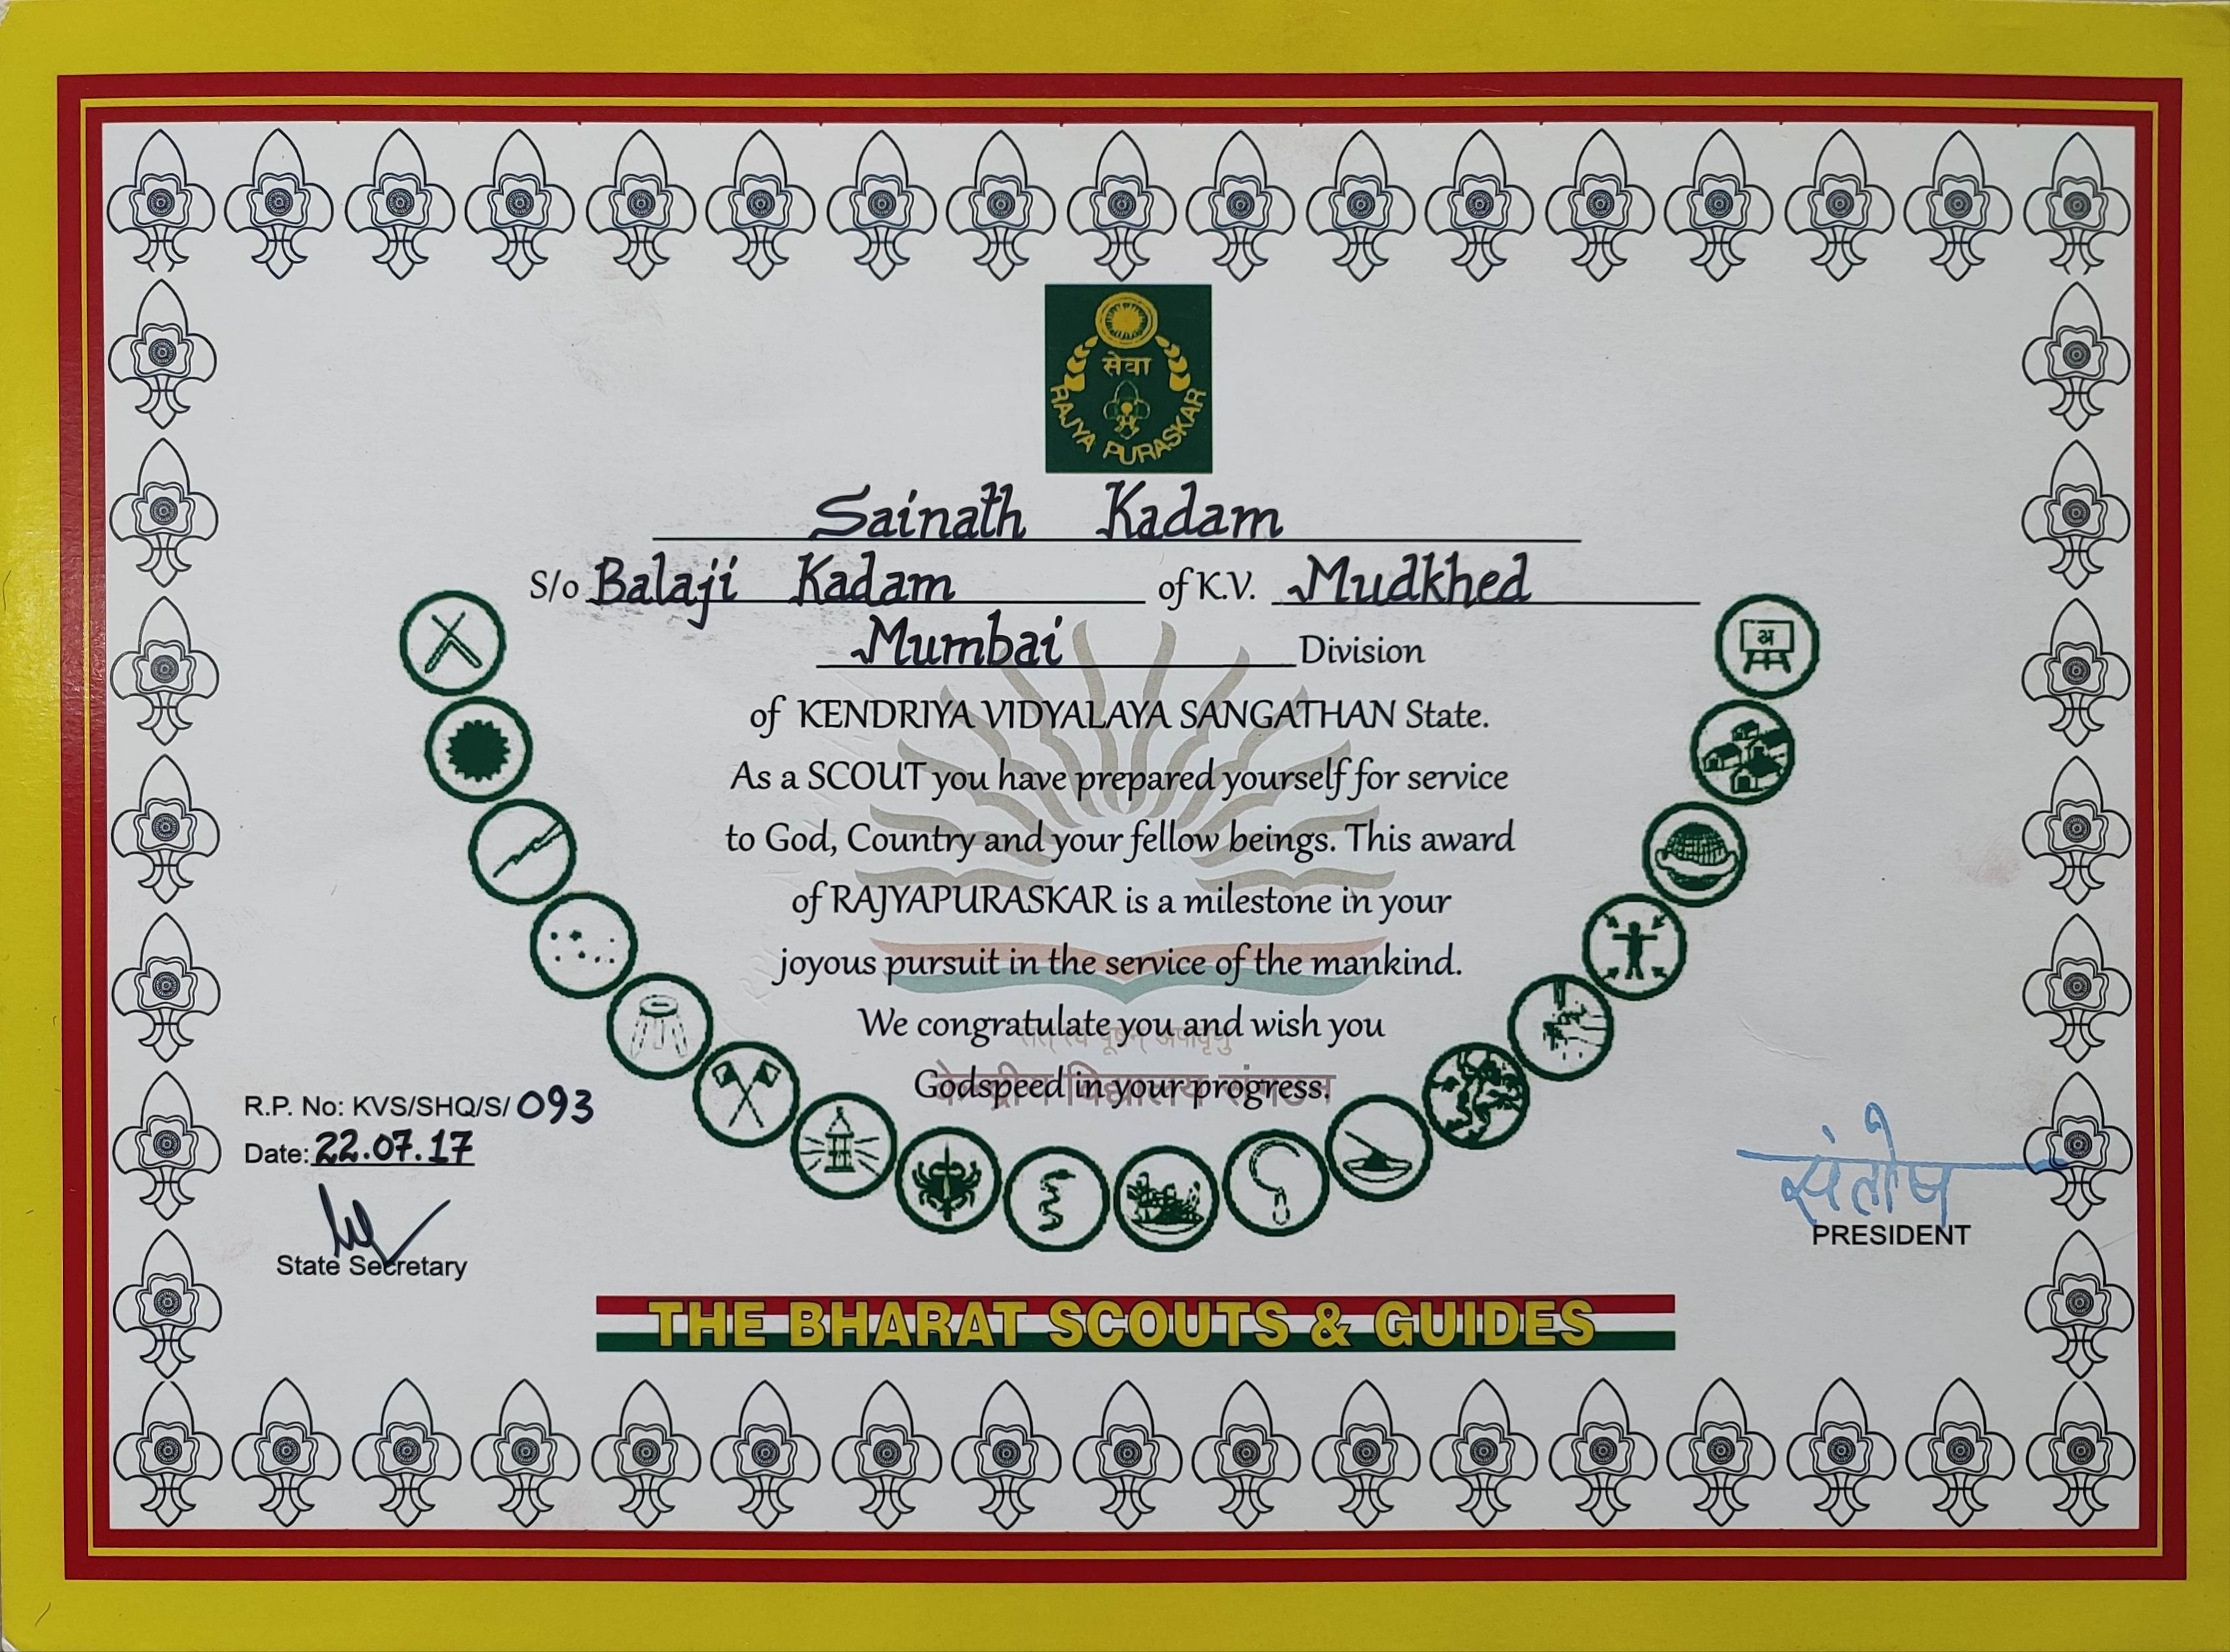 सेवा
RAJYA PURASKAR
Sainath Kadam
S/o Balaji Kadam of K.V. Mudkhed
Mumbai Division
of KENDRIYA VIDYALAYA SANGATHAN State.
As a SCOUT you have prepared yourself for service
to God, Country and your fellow beings. This award
of RAJYAPURASKAR is a milestone in your
joyous pursuit in the service of the mankind.
We congratulate you and wish you
तत् त्वं पूषन् अपावृणु
Godspeed in your progress.
केन्द्रीय विद्यालय संगठन
अ
R.P. No: KVS/SHQ/S/ 093
Date: 22.07.17
State Secretary
संतोष
PRESIDENT
THE BHARAT SCOUTS & GUIDES